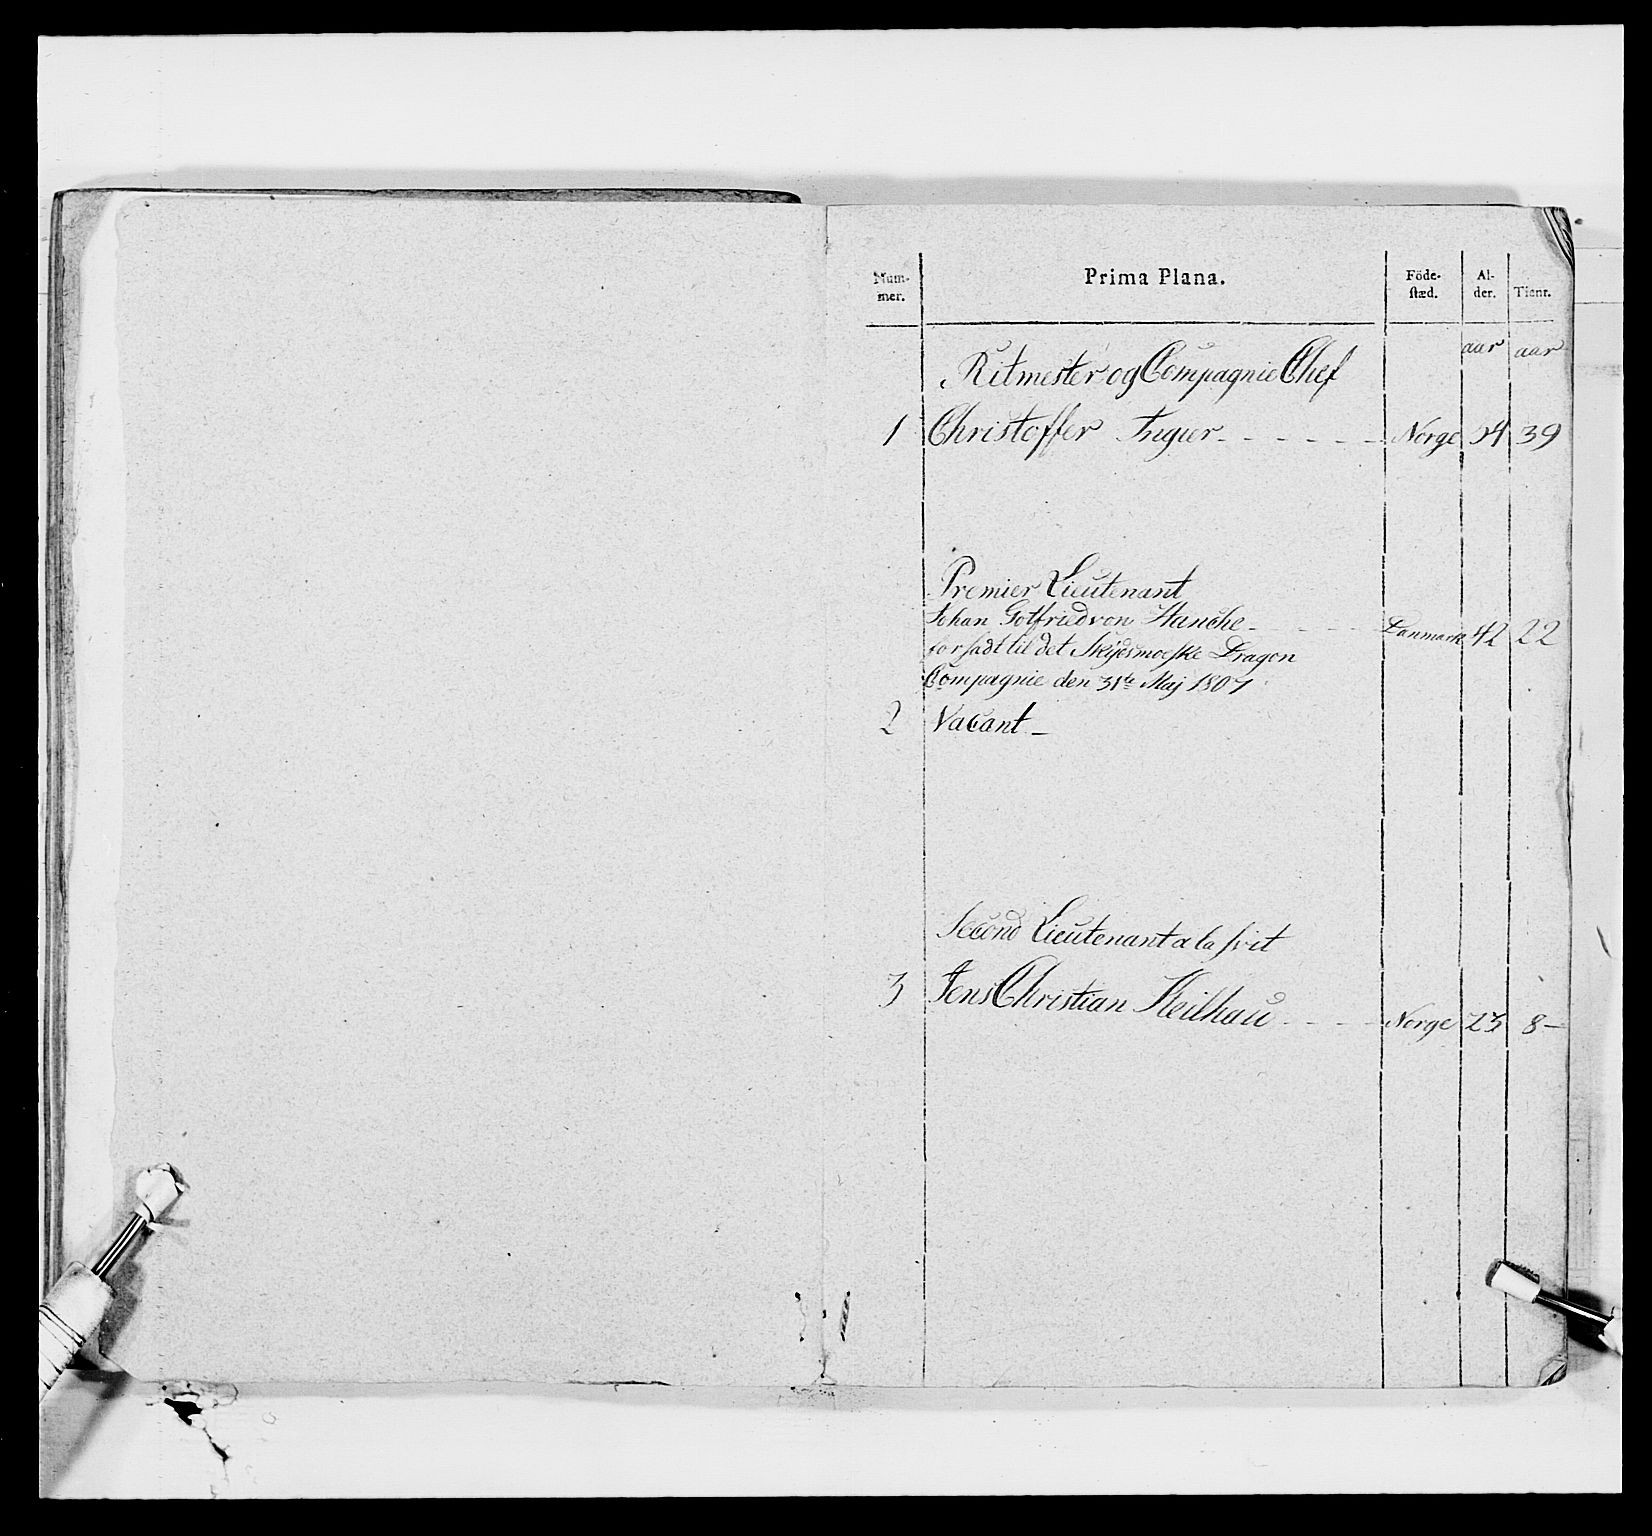 Num- Prima Plana. Föde- Al-
mer. ſtæd. der. Tient.
aar aar
Ritmester og Compagnie Chef
1 Christoffer Norge 54 39
Premier Lieutenant
Johan Gotfried von Hanche Danmark 42 22
forsadt til det Skydsmoeske Dragon
Compagnie den 31te Maj 1807
2 Vacant
Second Lieutenant a la svit
3 Jens Christian Keilhau Norge 23 8